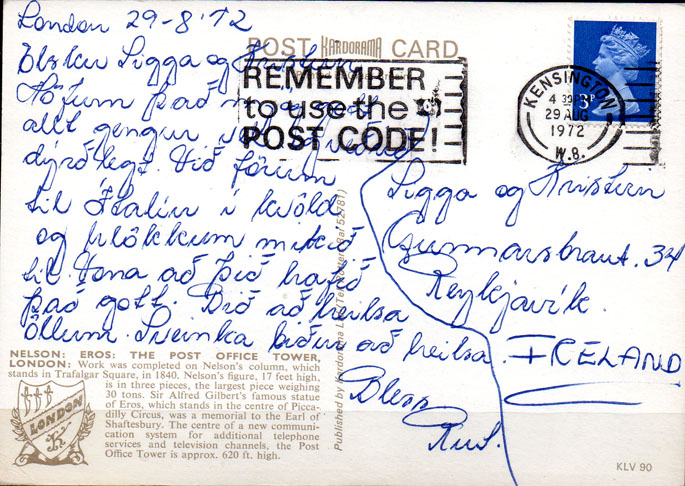 London 29-8-'72
Elsku Sigga og Kristinn
Höfum það mjög gott
allt gengur vel og veður
dýrðlegt. Við förum
til Italíu í kvöld
og hlökkum mikið
til. Vona að þið hafið
það gott. Bið að heilsa
öllum. Sveinka biður að heilsa
Bless
Rut.
POST KARDORAMA CARD
REMEMBER
to use the
POST CODE!
KENSINGTON
4 30PM
29 AUG
1972
W.8.
3P
Sigga og Kristinn
Gunnarsbraut. 34
Reykjavík.
IRELAND
Published by Kardorama Ltd.
NELSON: EROS: THE POST OFFICE TOWER,
LONDON: Work was completed on Nelson's column, which
stands in Trafalgar Square, in 1840. Nelson's figure, 17 feet high,
is in three pieces, the largest piece weighing
30 tons. Sir Alfred Gilbert's famous statue
of Eros, which stands in the centre of Picca-
dilly Circus, was a memorial to the Earl of
Shaftesbury. The centre of a new communi-
cation system for additional telephone
services and television channels, the Post
Office Tower is approx. 620 ft. high.
LONDON
KLV 90